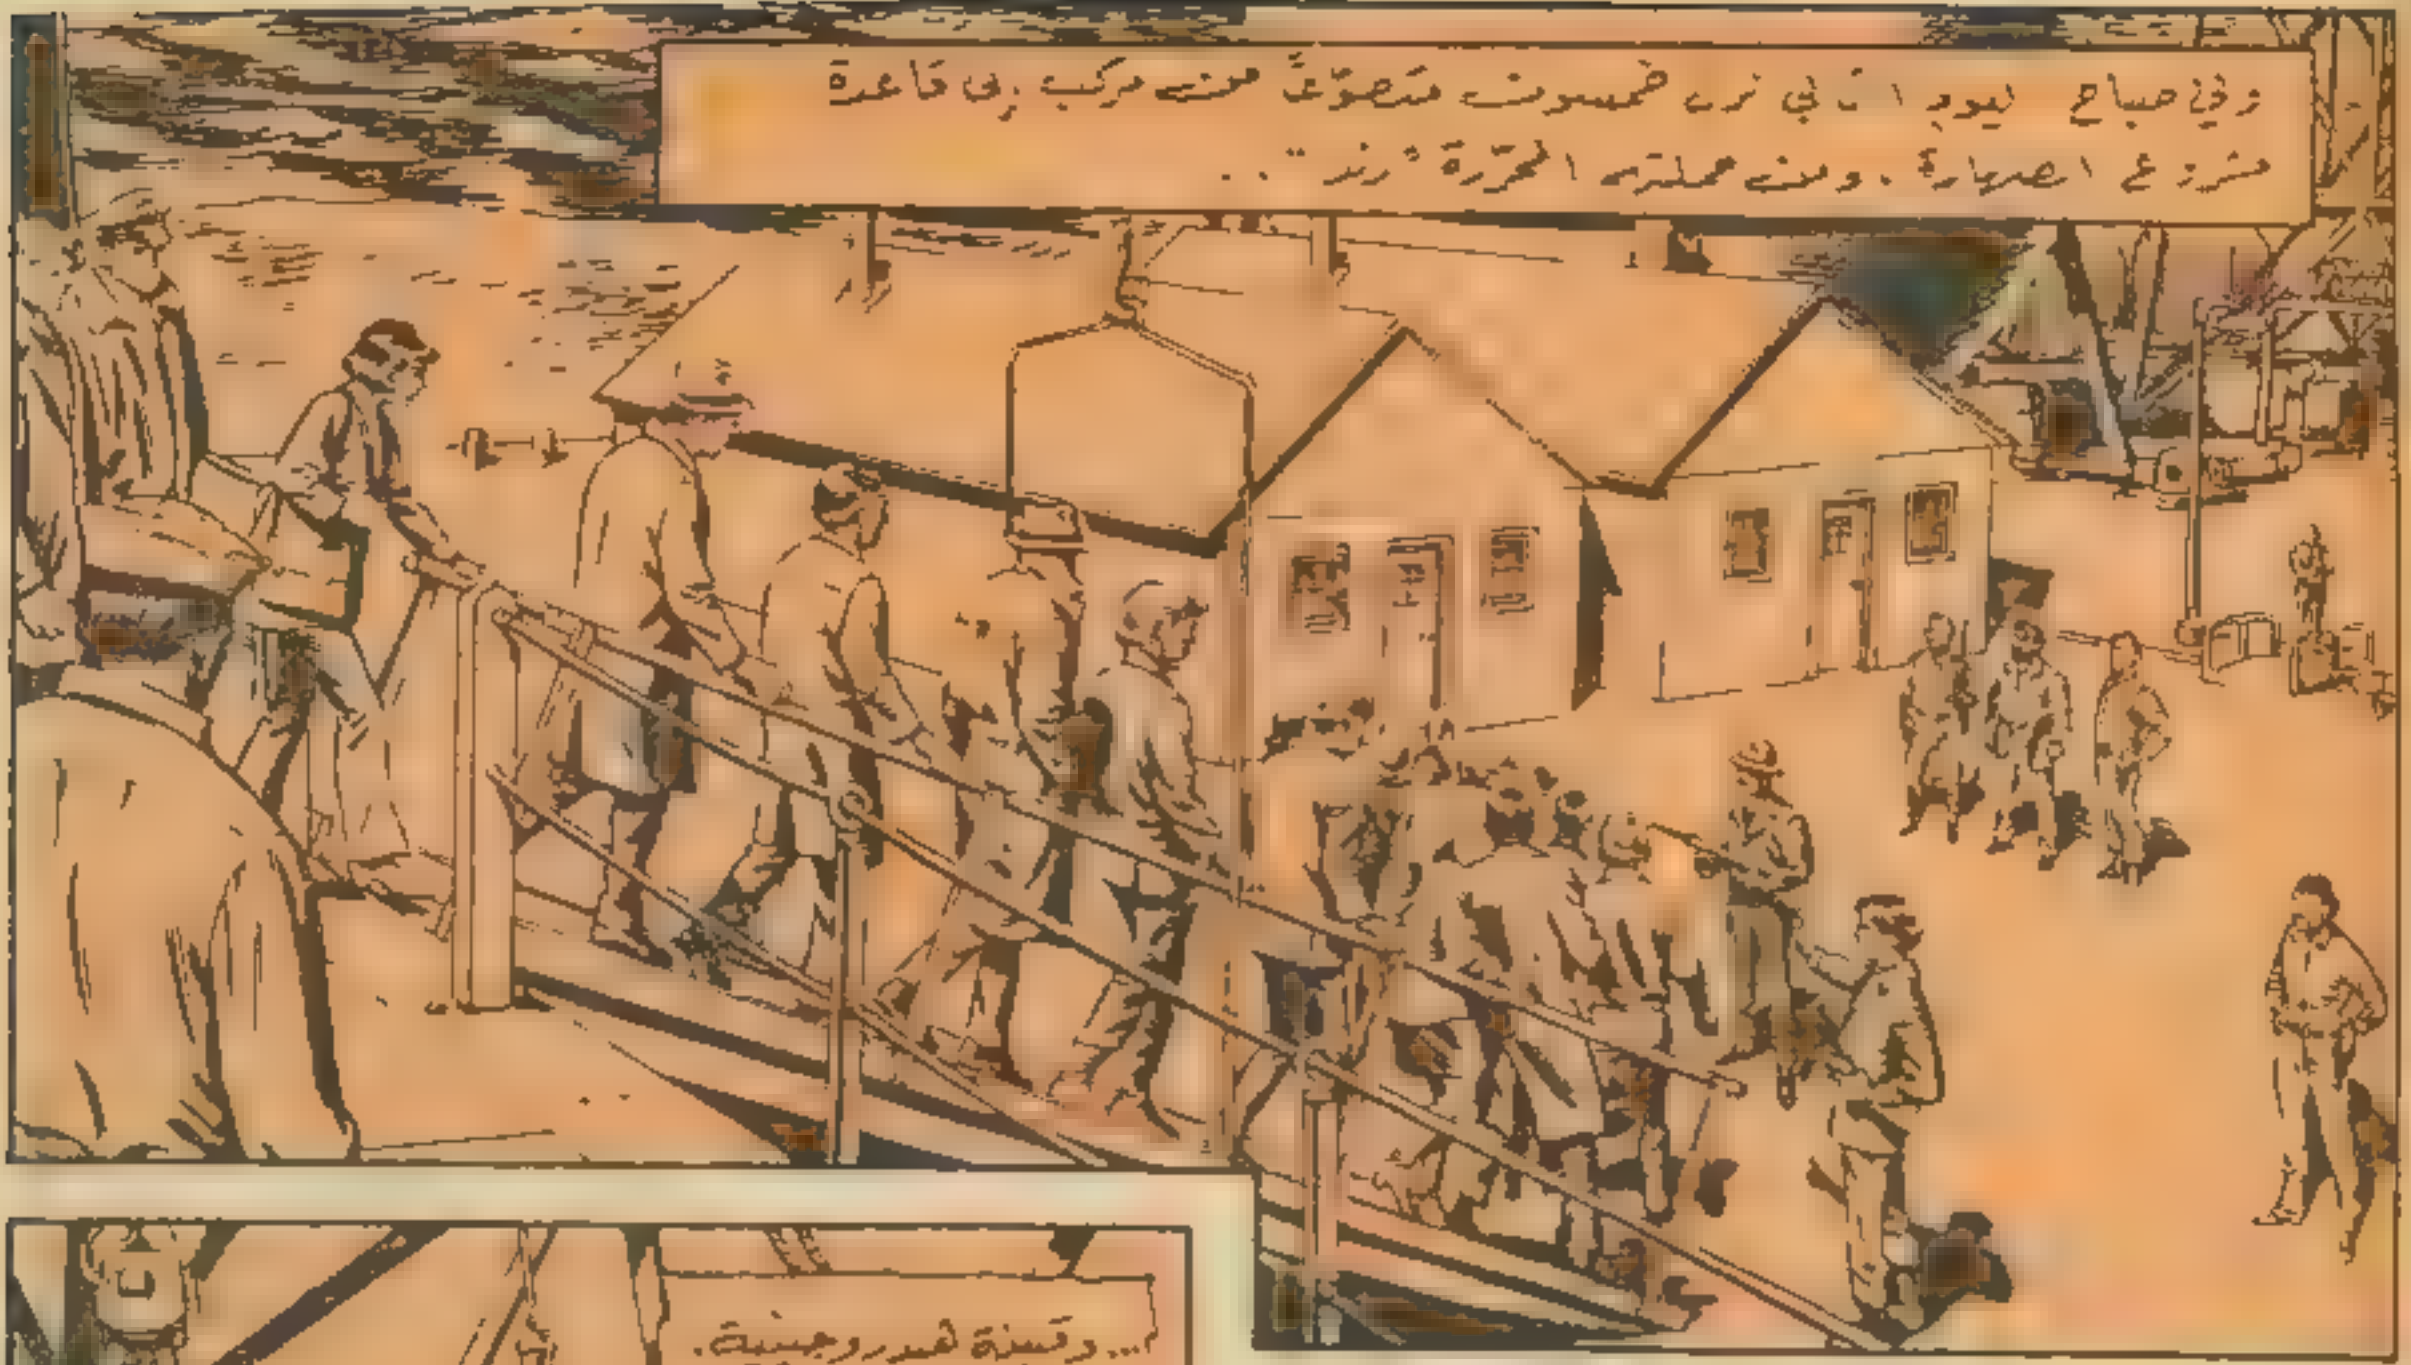 وفي صباح اليوم الثاني نزل خمسون متطوّعاً من مركب إلى قاعدة
مشروع الصهارة. ومن جملتهم المحرّرة "رند"..
...وقنبلة هيدروجينية.